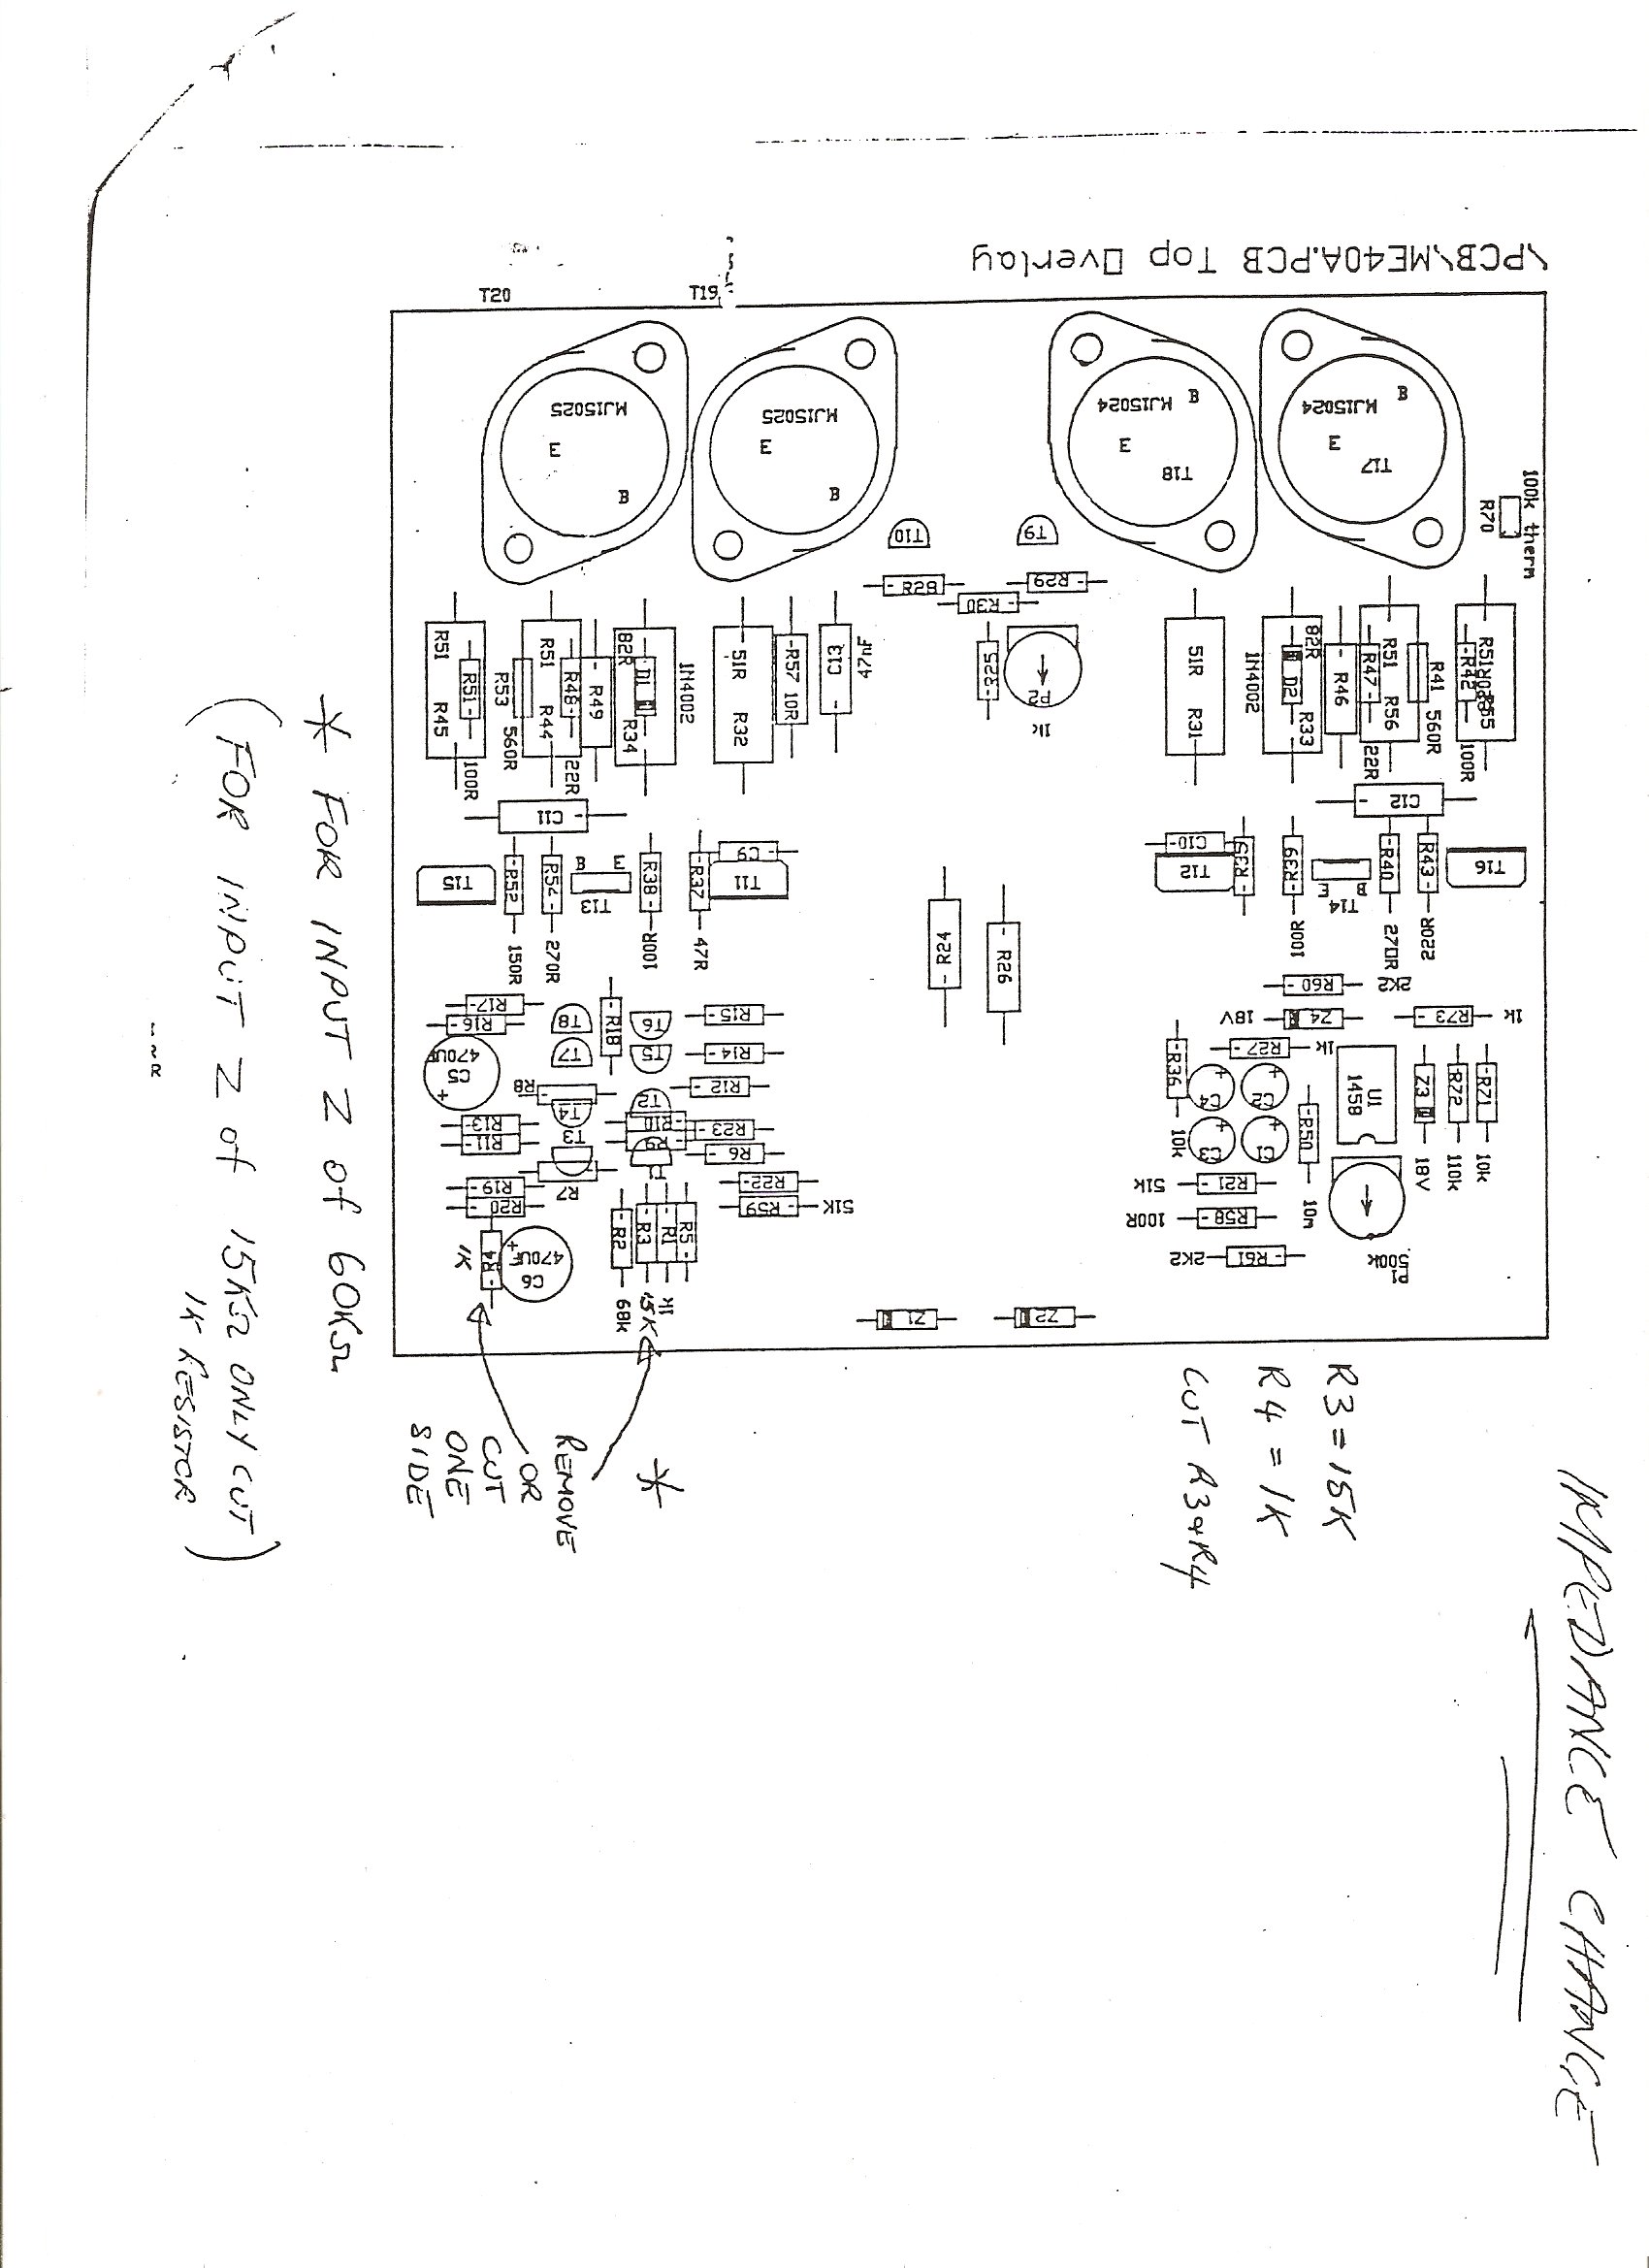 \PCB\ME40A.PCB Top Overlay
T20
T19
MJ15025
E
B
MJ15025
E
B
MJ15024
B
E
T18
MJ15024
B
E
T17
100k therm
R70
T10
T9
R28
R30
R29
R25
P2
1k
R51
R51
R45
100R
R53
560R
R51
R48
R44
22R
R49
82R
D1
R34
1N4002
51R
R32
R57 10R
C13
47nF
51R
R31
1N4002
82R
D2
R33
R46
R51
R47
R56
22R
R41
560R
R42
R55
100R
C11
C12
T15
R52
150R
R54
270R
B E
T13
R38
100R
R37
47R
C9
T11
C10
T12
R35
R39
100R
E B
T14
R40
270R
R43
022R
T16
R24
R26
R17
R16
470UF
C5
+
T8
T7
R18
T6
T5
R15
R14
R12
R8
T4
T3
T2
R10
R9
T1
R23
R6
R13
R11
R7
R22
R59
51K
R19
R20
R4
1K
470UF
C6
+
R2
68k
R3
15K
R1
1k
R5
Z1
Z2
R60
2K2
18V
Z4
R73
1k
R27
1k
R36
10k
C4
C2
C3
C1
R50
10m
U1
1458
Z3
18V
R72
110k
R71
10k
51K
R21
100R
R58
2K2
R61
P1
500k
IMPEDANCE CHANGE
R3 = 15K
R4 = 1K
CUT R3 & R4
*
REMOVE
OR
CUT
ONE
SIDE
* FOR INPUT Z of 60KΩ
(FOR INPUT Z of 15KΩ ONLY CUT
1K RESISTOR)